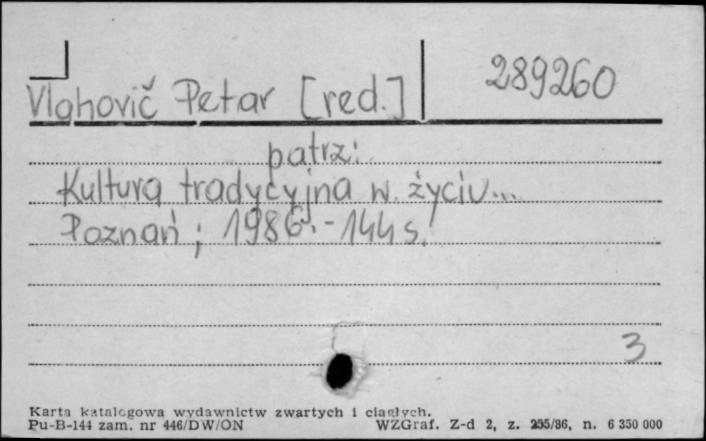 Vlahovič Petar [red.] 289260
patrz:
Kultura tradycyjna w życiu...
Poznań ; 1986. - 144 s.
3
Karta katalogowa wydawnictw zwartych i ciągłych.
Pu-B-144 zam. nr 446/DW/ON WZGraf. Z-d 2, z. 255/86, n. 6 350 000